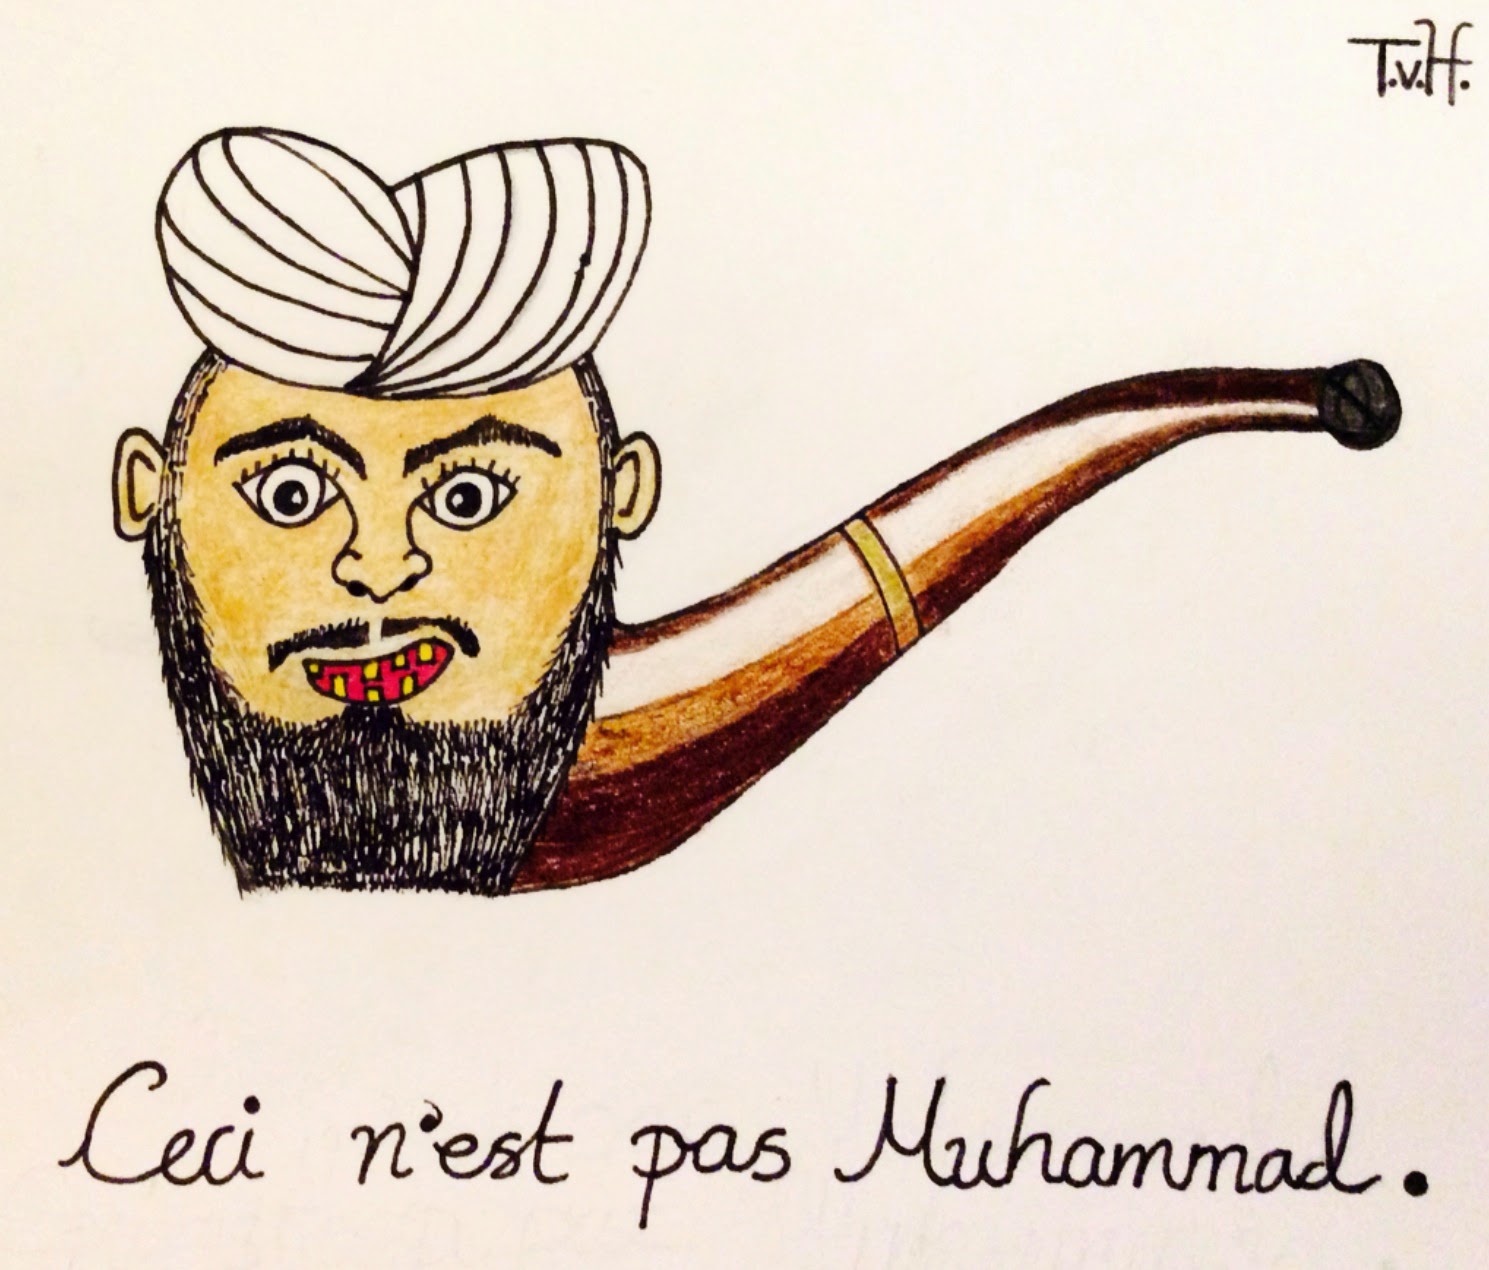 T.v.H.
Ceci n'est pas Muhammad.